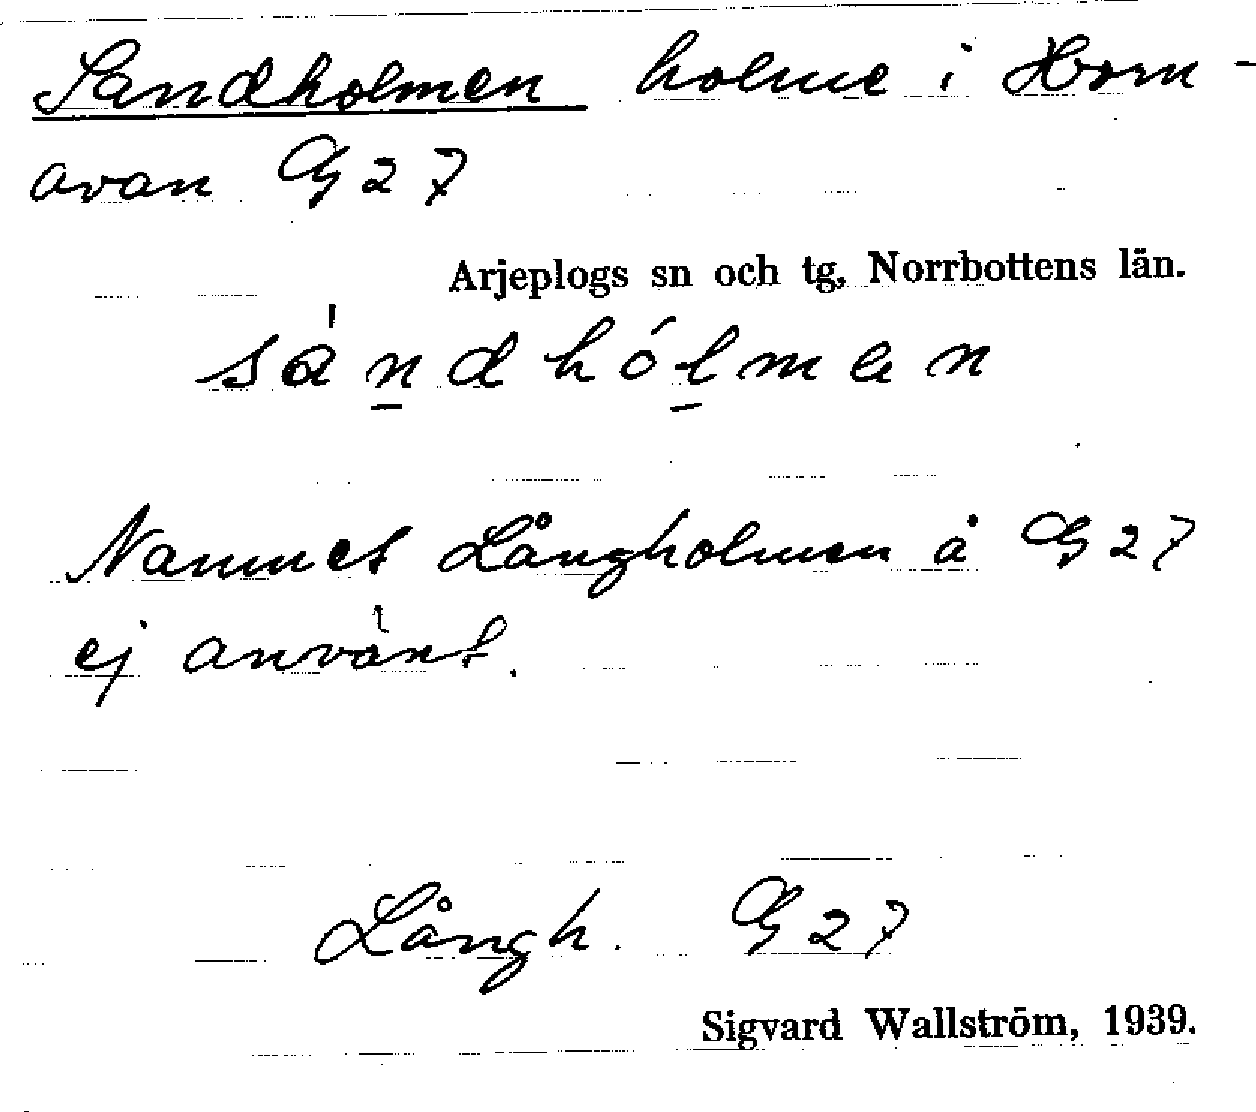 Sandholmen holme i Horn-
avan G 27
Arjeplogs sn och tg, Norrbottens län.
sa̍n̲dhól̲mɘn
Namnet Långholmen å G 27
ej använt.
Långh. G 27
Sigvard Wallström, 1939.